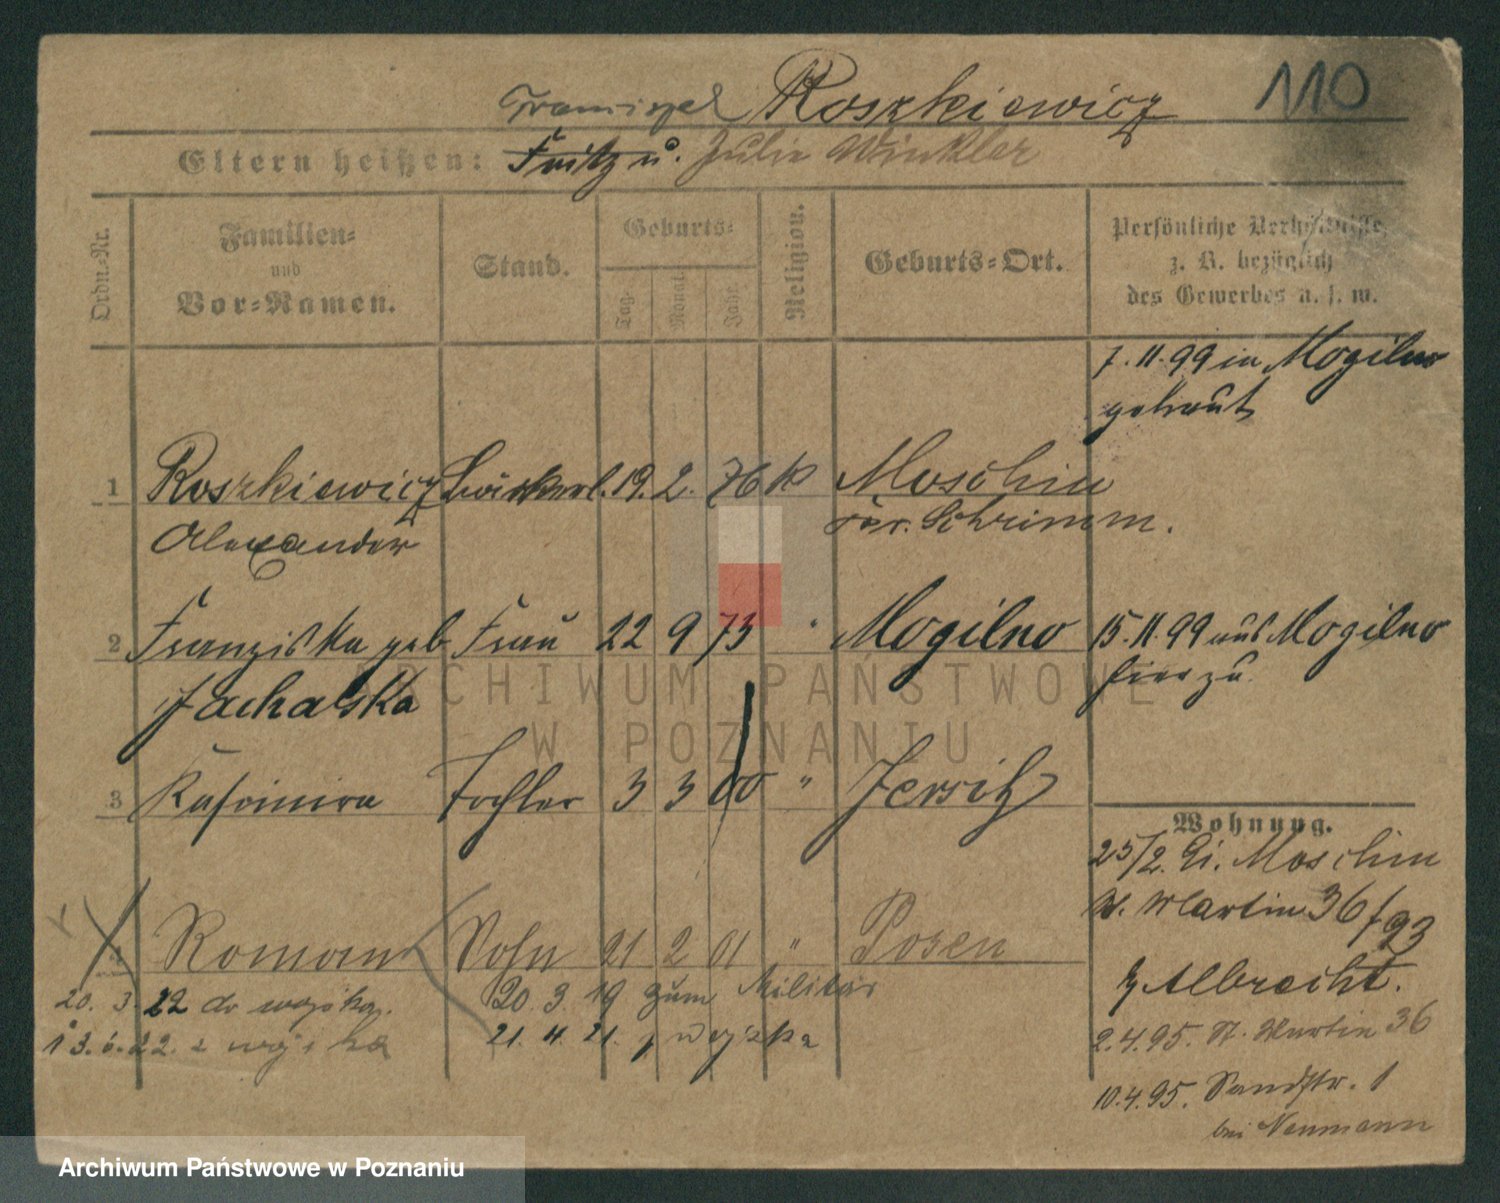 110
Franciszek Roszkiewicz
Eltern heißen: Fritz u. Julie Winkler
Ordn.-Nr.
Familien-
und
Vor-Namen.
Stand.
Geburts-
Tag.
Monat.
Jahr.
Religion.
Geburts-Ort.
Persönliche Verhältnisse,
z. B. bezüglich
des Gewerbes u. s. w.
7.11.99 in Mogilno
getraut
1 Roszkiewicz 19. 2. 76 k Moschin
Alexander Kr. Schrimm.
2 Franziska geb Frau 22 9 73 " Mogilno 15.11.99 aus Mogilno
Jachalska hierzu
3 Kasimira Tochter 3 3 00 " Jersitz
Wohnung.
25/2. Moschin
St. Martin 36/93
Albrecht.
4 Roman Sohn 21 2 01 " Posen
20. 3. 22 do wojska. 20. 3. 19 zum Militär
13. 6. 22. z wojska 21. 4. 21. z wojska
2.4.95. St. Martin 36
10.4.95. Sandstr. 1
bei Neumann
ARCHIWUM PAŃSTWOWE
W POZNANIU
Archiwum Państwowe w Poznaniu